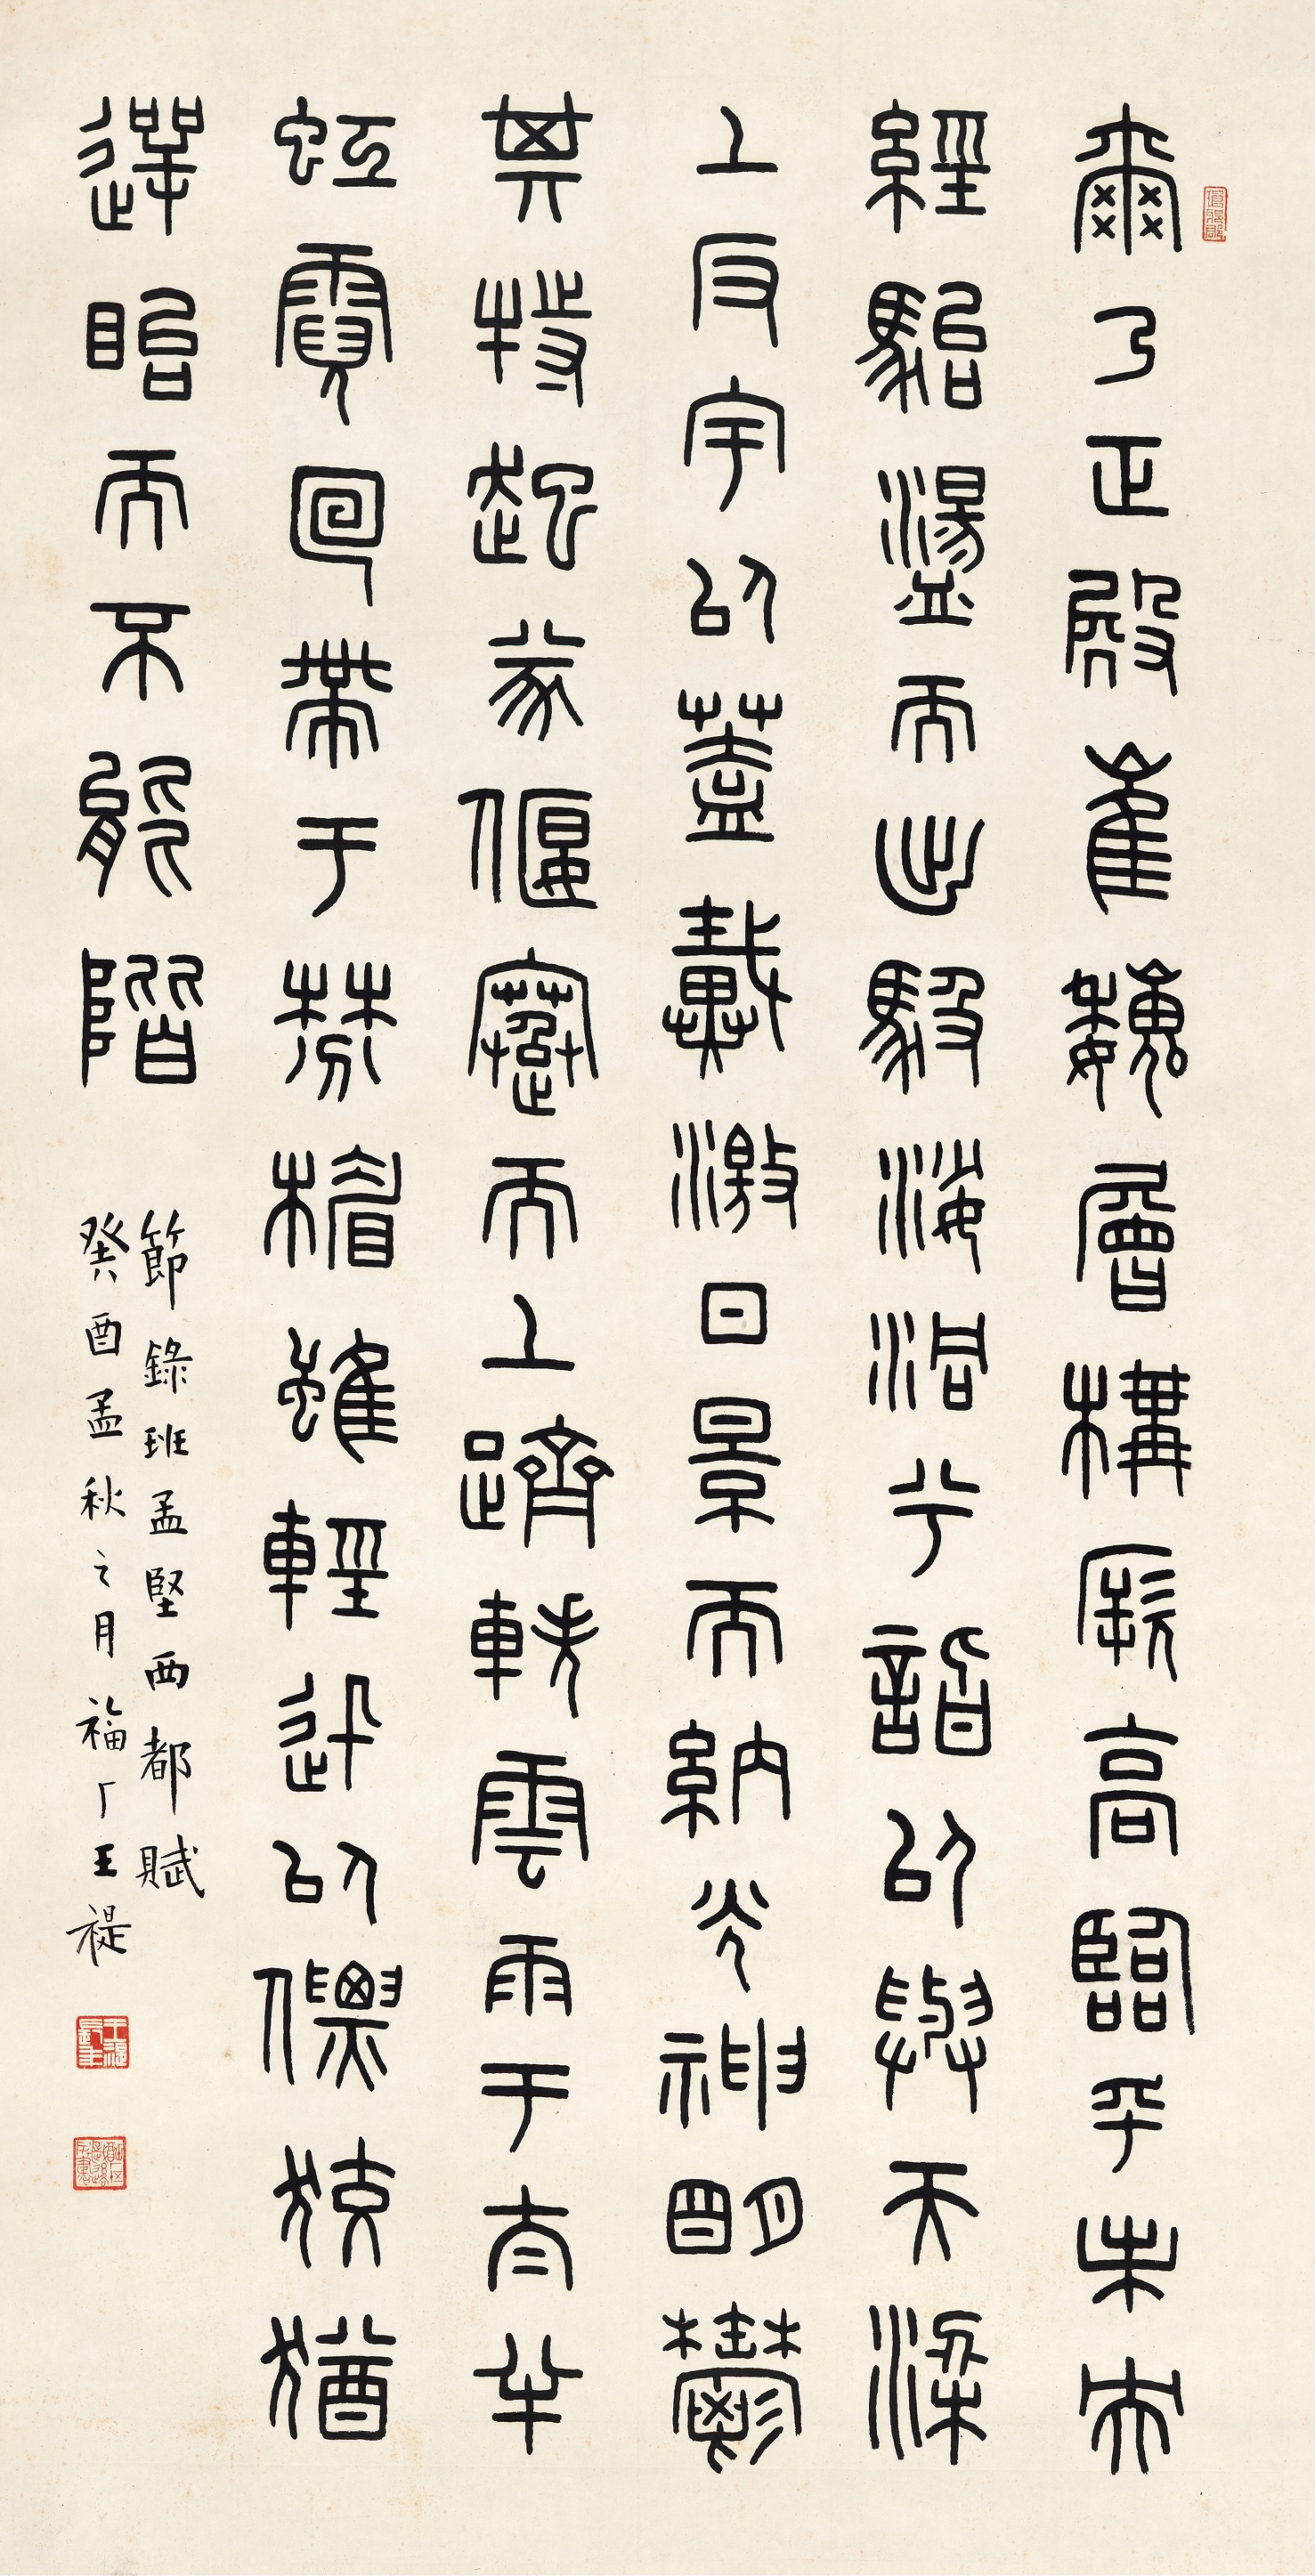 爾乃正殿崔巍層構厥高臨乎未央
經駘盪而出馺娑洞兮詣以與天梁
上反宇以蓋戴激日景而納光神明鬱
其特起遂偃蹇而上躋軼雲雨于太半
虹霓回帶于棼楣雖輕迅以僄狡猶
遌眙而不能階
節錄班孟堅西都賦
癸酉孟秋之月福厂王禔